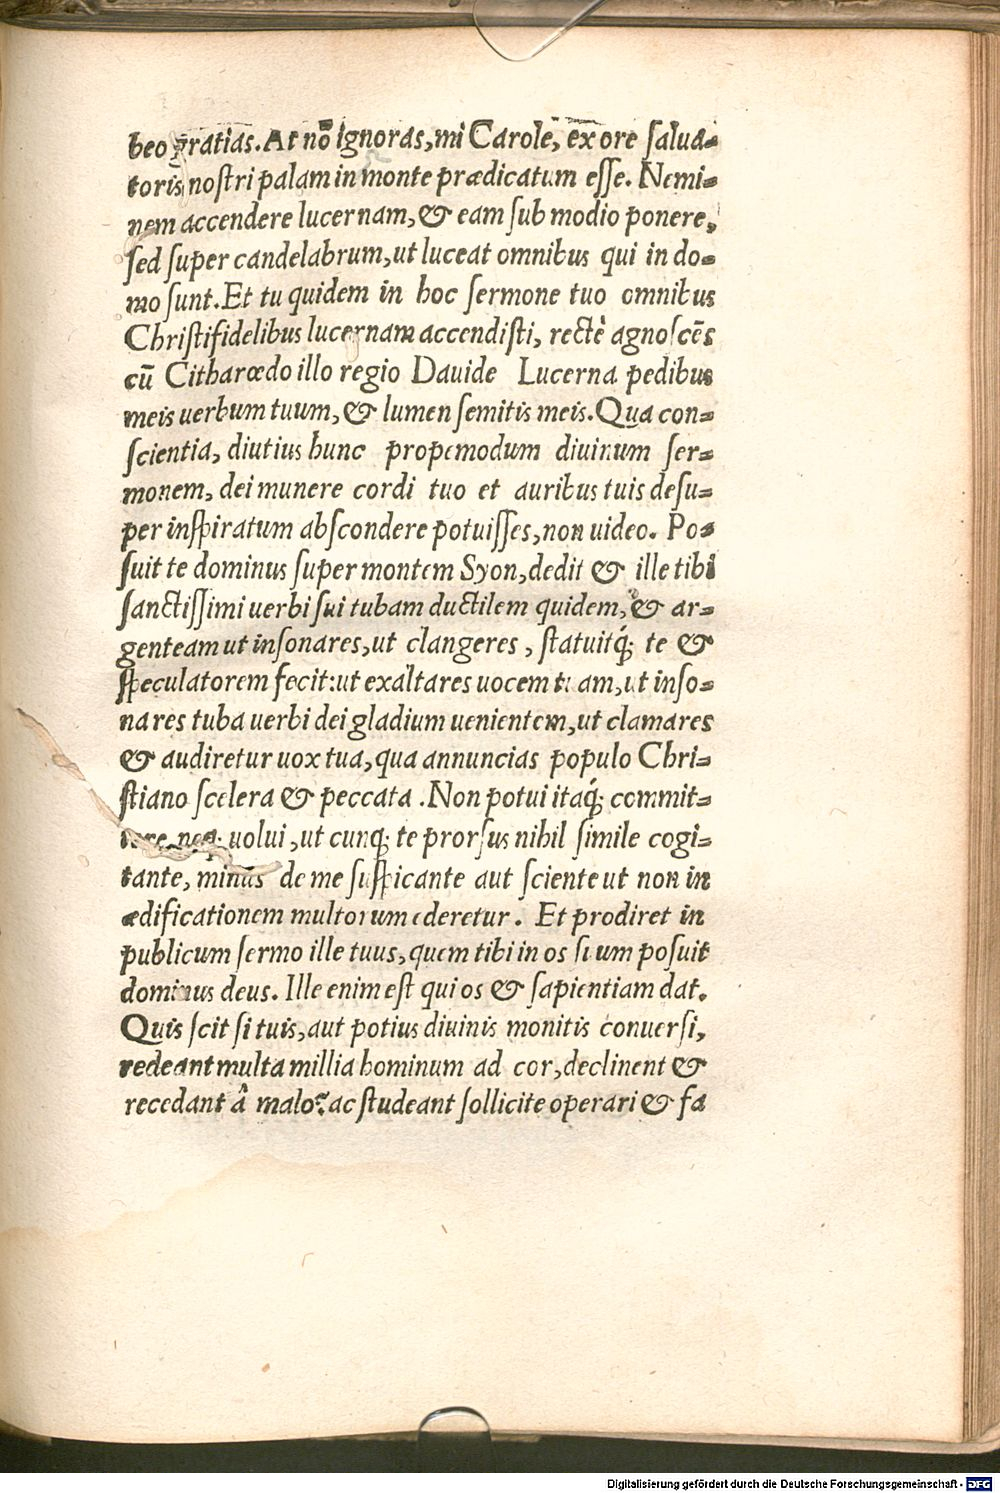 beo gratias. At nõ ignoras, mi Carole, ex ore salua-
toris nostri palam in monte prædicatum esse. Nemi-
nem accendere lucernam, & eam sub modio ponere,
sed super candelabrum, ut luceat omnibus qui in do-
mo sunt. Et tu quidem in hoc sermone tuo omnibus
Christifidelibus lucernam accendisti, rectè agnoscẽs
cũ Citharœdo illo regio Dauide Lucerna pedibus
meis uerbum tuum, & lumen semitis meis. Qua con-
scientia, diutius hunc propemodum diuinum ser-
monem, dei munere cordi tuo et auribus tuis desu-
per inspiratum abscondere potuisses, non uideo. Po-
suit te dominus super montem Syon, dedit & ille tibi
sanctissimi uerbi sui tubam ductilem quidem, & ar-
genteam ut insonares, ut clangeres, statuitq́; te &
speculatorem fecit: ut exaltares uocem tuam, ut inso-
nares tuba uerbi dei gladium uenientem, ut clamares
& audiretur uox tua, qua annuncias populo Chri-
stiano scelera & peccata. Non potui itaq́; commit-
tere neq; uolui, ut cunq; te prorsus nihil simile cogi-
tante, minus de me suspicante aut sciente ut non in
ædificationem multorum ederetur. Et prodiret in
publicum sermo ille tuus, quem tibi in os suum posuit
dominus deus. Ille enim est qui os & sapientiam dat.
Quis scit si tuis, aut potius diuinis monitis conuersi,
redeant multa millia hominum ad cor, declinent &
recedant â malo? ac studeant sollicite operari & fa
Digitalisierung gefördert durch die Deutsche Forschungsgemeinschaft - DFG